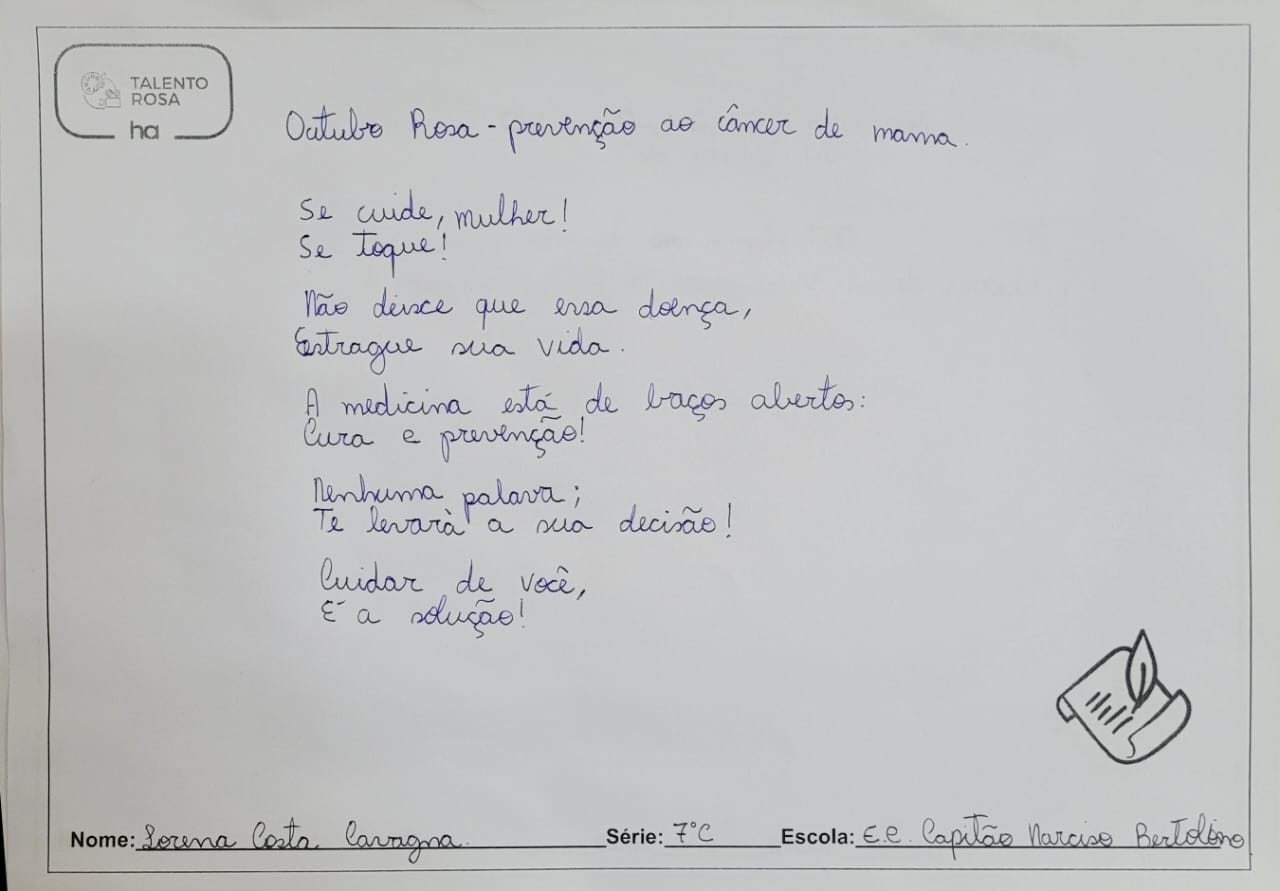 TALENTO
ROSA
ha
Outubo Rosa - prevenção ao câncer de mama.
Se cuide, mulher!
Se toque!
Não deixe que essa doença,
Estrague sua vida.
A medicina está de baços abertos:
Cura e prevenção!
Nenhuma palava;
Te levarà a sua decisão!
Cuidar de você,
É a solução!
Nome: Lorena Costa Cavagna. Série: 7°C Escola: E.E. Capitão Narciso Bertolino